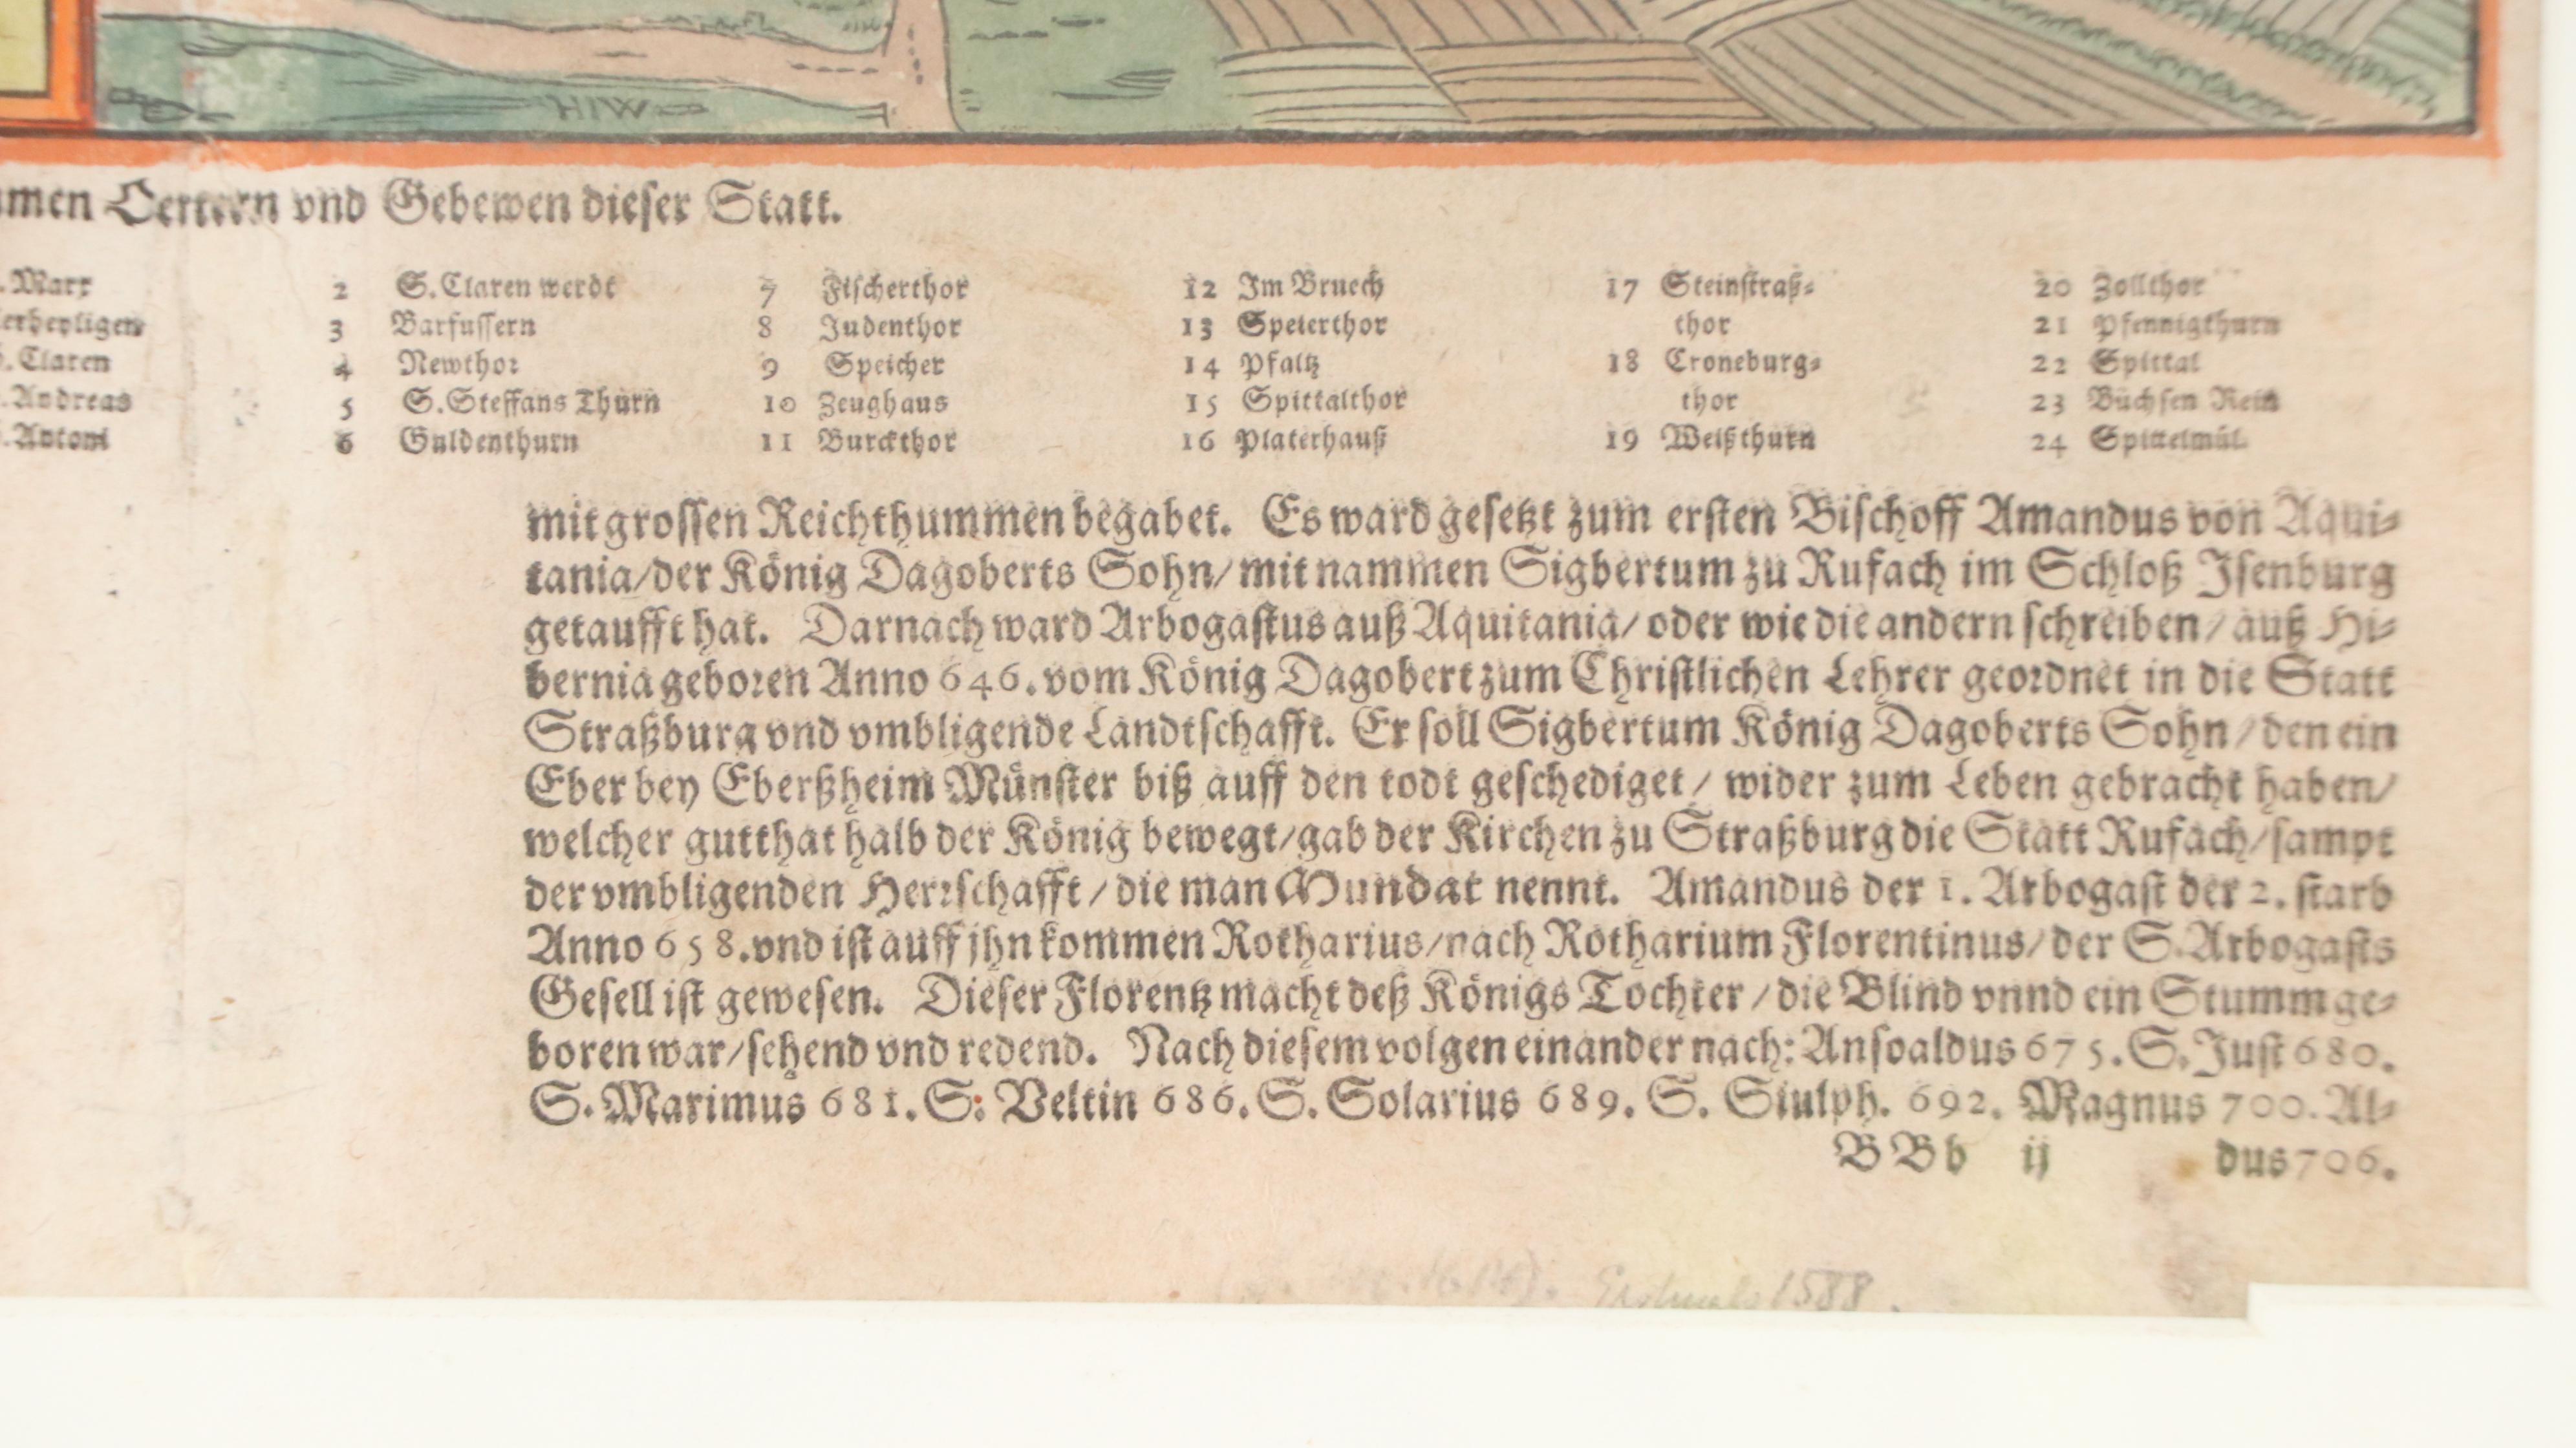 HIW
men Oertern vnd Gebewen dieser Statt.
. Marx 2 S. Claren werdt 7 Fischerthor 12 Im Bruech 17 Steinstraß⸗ 20 Zollthor
erheyligen 3 Barfussern 8 Judenthor 13 Speierthor thor 21 Pfennigthurn
. Claren 4 Newthor 9 Speicher 14 Pfaltz 18 Croneburg⸗ 22 Spittal
. Andreas 5 S. Steffans Thurn 10 Zeughaus 15 Spittalthor thor 23 Büchsen Rein
. Antoni 6 Guldenthurn 11 Burckthor 16 Platerhauß 19 Weißthurn 24 Spittelmül.
mit grossen Reichthummen begabet. Es ward gesetzt zum ersten Bischoff Amandus von Aqui⸗
tania/der König Dagoberts Sohn/mit nammen Sigbertum zu Rufach im Schloß Isenburg
getaufft hat. Darnach ward Arbogastus auß Aquitania/oder wie die andern schreiben/auß Hi⸗
bernia geboren Anno 646. vom König Dagobert zum Christlichen Lehrer geordnet in die Statt
Straßburg vnd vmbligende Landtschafft. Er soll Sigbertum König Dagoberts Sohn/den ein
Eber bey Eberßheim Münster biß auff den todt geschediget/wider zum Leben gebracht haben/
welcher gutthat halb der König bewegt/gab der Kirchen zu Straßburg die Statt Rufach/sampt
der vmbligenden Herrschafft/die man Mundat nennt. Amandus der 1. Arbogast der 2. starb
Anno 658. vnd ist auff jhn kommen Rotharius/nach Rotharium Florentinus/der S. Arbogasts
Gesell ist gewesen. Dieser Florentz macht deß Königs Tochter/die Blind vnnd ein Stumm ge⸗
boren war/sehend vnd redend. Nach diesem volgen einander nach: Ansoaldus 675. S. Just 680.
S. Maximus 681. S: Veltin 686. S. Solarius 689. S. Siulph. 692. Magnus 700. Al⸗
BBb ij dus 706.
Erstmals 1588.